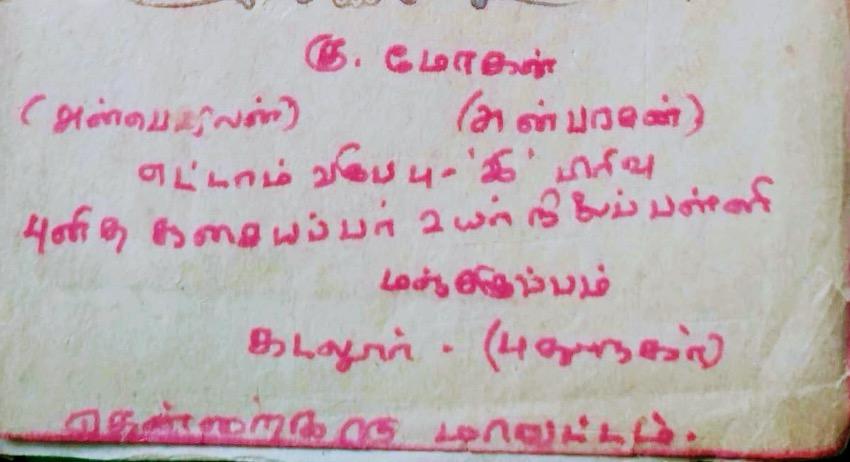 கு. மோகன்
(அன்பெழிலன்) (அன்பரசன்)
எட்டாம் வகுப்பு - 'இ' பிரிவு
புனித உயர்நிலைப்பள்ளி
மஞ்சகுப்பம்
கடலூர் - (புதுநகர்)
தென்னாற்காடு மாவட்டம்.